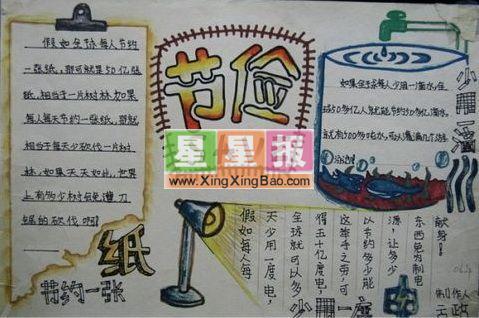 假如全球每人节约
一张纸,那可就是50亿张
纸,相当于一片树林,如果
每人每天节约一张纸,那就
相当于每天少砍伐一片树
林,如果天天如此,世界
上有多少树能免遭刀
锯的砍伐啊!
纸
节约一张
节俭
星星报
www.XingXingBao.com
如果全球每人少用一滴水,全
球50多亿人就能节约50多亿滴水,
假如每人每
天少用一度电,
全球就可以多
得五十亿度电,
这举手之劳,可
以节约多少能
源,让多少
东西免为制电
献身!
少用一度
制作人